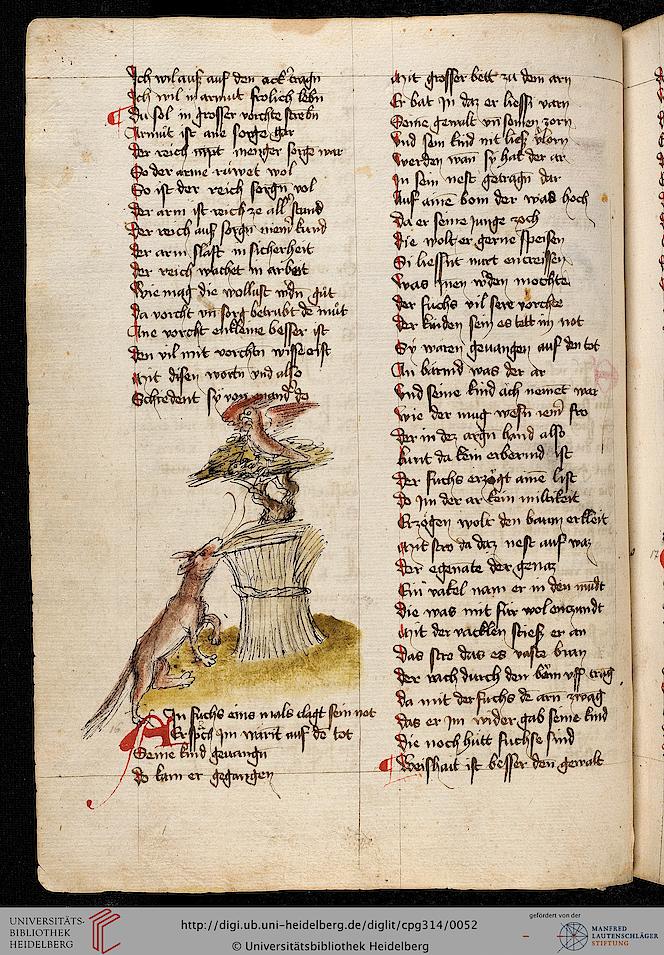 Ich wil auß auf den ack' tragn
Ich wil in armuͦt frolich lebn
Du sol in grosser vorchte strebn
Armuͦt ist ane sorge gar
Der reich nipt menger sorge war
So der arme ruͦwet wol
So ist der reich sorgn vol
Der arm ist reich ze all' stund
Der reich auß sorgn niem' kund
Der arm slaft in sicherheit
Der reich wachet in arbeit
Wie mag die wollust w'dn guͦt
Da vorcht vn sorg betruͦbt de muͦt
Ane vorcht en kleine besser ist
Den vil mit vorchtn wisse crist
Mit disen wortn vnd also
Schiedent sy von anand' do
Ain fuchs eins mals clagt sein not
Er sprach im warit auf de tot
Seine kind geuangn
Do kam er gegangen
Mit grosser bett zu dem arn
Er bat in daz er liess varn
Seine gewalt vn seinen zorn
Vnd sein kind nit ließ v'lorn
Werden wan sy hat der ar
In sein nest getragn dar
Auf aine bom der was hoch
Da er seine junge zoch
Die wolt er gerne speisen
Si liessnt nut entreissen
Was inen w'den mochte
Der fuchs vil sere vorchte
Der kinden sein es tett im not
Sy waren geuangen auf den tot
An barmd was der ar
Vnd seine kind ach nemet war
Wie der mug wesn iem' fro
Der in dez argn hand also
kumt da kein erbermd ist
Der fuchs erzoͤgt aine list
Do im der ar kein miltikeit
Erzoͤgen wolt den baum er kleit
Mit stro da daz nest auf waz
Der egenate der genaz
Ein vakel nam er in den mudt
Die was mit fuͤr wol enzundt
Mit der vacklen stieß er an
Das stro das es vaste bran
Der rach durch den boͧm vff trag
Da mit der fuchs de arn zwag
Das er im wider gab seine kind
Die noch huͤtt fuchse sind
Weishait ist besser den gewalt
UNIVERSITÄTS-
BIBLIOTHEK
HEIDELBERG
http://digi.ub.uni-heidelberg.de/diglit/cpg314/0052
© Universitätsbibliothek Heidelberg
gefördert von der
MANFRED
LAUTENSCHLÄGER
STIFTUNG